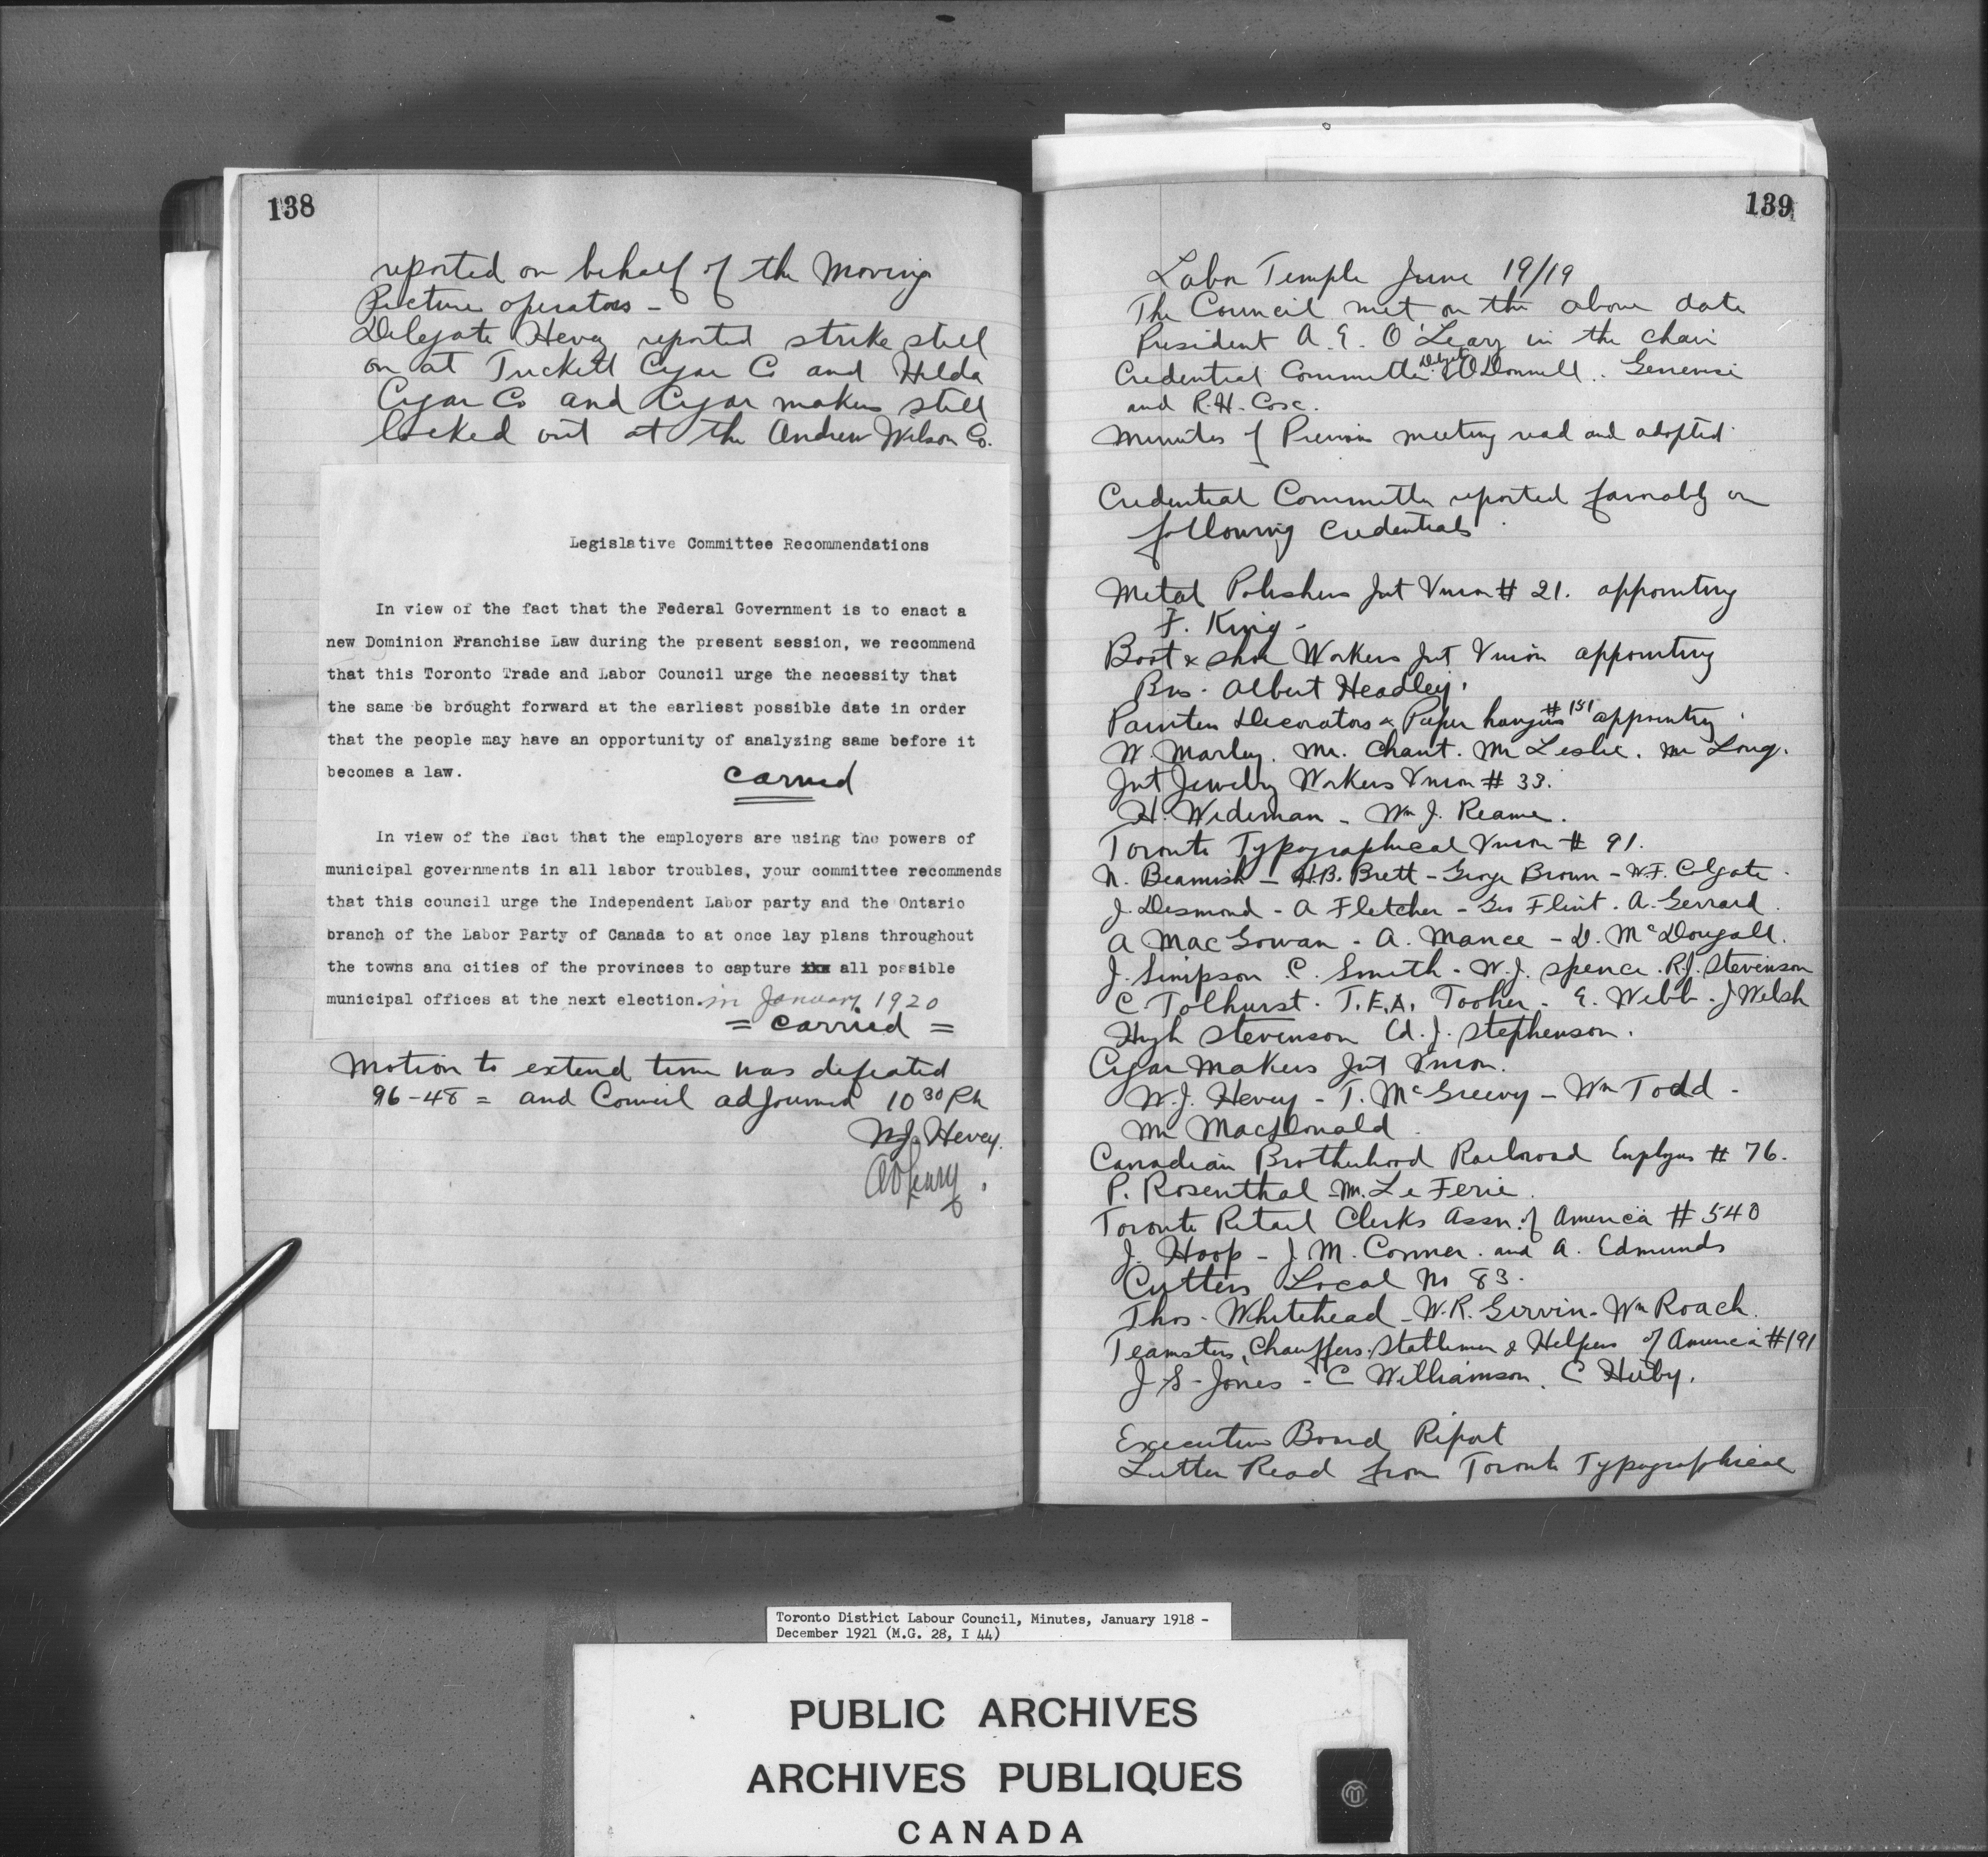 138
reported on behalf of the Moving
Picture operators -
Delegate Hevey reported strike still
on at Tuckett Cigar Co and Hilda
Cigar Co and Cigar makers still
locked out at the Andrew Wilson Co.
Legislative Committee Recommendations
In view of the fact that the Federal Government is to enact a
new Dominion Franchise Law during the present session, we recommend
that this Toronto Trade and Labor Council urge the necessity that
the same be brought forward at the earliest possible date in order
that the people may have an opportunity of analyzing same before it
becomes a law.
carried
In view of the fact that the employers are using the powers of
municipal governments in all labor troubles, your committee recommends
that this council urge the Independent Labor party and the Ontario
branch of the Labor Party of Canada to at once lay plans throughout
the towns and cities of the provinces to capture all possible
municipal offices at the next election. in January 1920
= carried =
Motion to extend time was defeated
96-48 = and Council adjourned 10 30 PM
W.J. Hevey.
A O'Leary.
139
Labor Temple June 19/19
The Council met on the above date
President A. E. O'Leary in the chair
Credential Committee Delgts O'Donnell.
and R.H. Cox.
Minutes of Previous meeting read and adopted
Credential Committee reported favorably on
following Credentials
Metal Polishers Int Union # 21. appointing
F. King -
Boot & Shoe Workers Int Union appointing
Bro. Albert Headley.
Painters Decorators & Paper hangers # 151 appointing
W. Marley. Mr. Chant. Mr Leslie. Mr Long.
Int Jewelry Workers Union # 33.
H. Wideman - Wm J. Reame.
Toronto Typographical Union # 91.
N. Beamish - H.B. Brett - George Brown - W.F. Colgate -
J. Desmond - A Fletcher - Geo Flint. A. Gerrard.
A MacGowan - A. Mance - D. McDougall.
J. Simpson. C. Smith - W.J. Spence. R.J. Stevenson
C Tolhurst. T.E.A. Tooher - E. Webb - J Welsh
Hugh Stevenson Ed. J. Stephenson.
Cigar Makers Int Union.
W.J. Hevey - T. McGreevy - Wm Todd -
Mr MacDonald.
Canadian Brotherhood Railroad Employees # 76.
P. Rosenthal - M. Le Ferie.
Toronto Retail Clerks Assn. of America # 540
J. Hoop - J. M. Conner. and A. Edmunds
Cutters Local No 83.
Thos. Whitehead - W.R. Girvin - Wm Roach.
Teamsters, Chauffers. Stablemen & Helpers of America #191
J S. Jones - C Williamson. C Huby.
Executive Board Report
Letter Read from Toronto Typographical
Toronto District Labour Council, Minutes, January 1918 -
December 1921 (M.G. 28, I 44)
PUBLIC ARCHIVES
ARCHIVES PUBLIQUES
CANADA